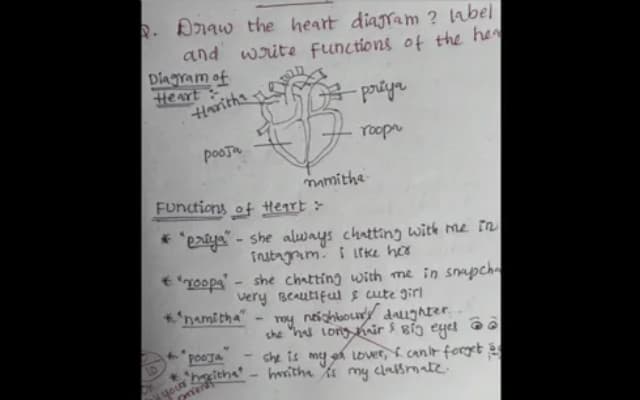 Q. Draw the heart diagram? label
and write functions of the hea
Diagram of
Heart :-
Haritha
priya
roopa
pooja
namitha
Functions of Heart :-
* "priya" - she always chatting with me in
instagram. i like her
* "roopa" - she chatting with me in snapcha
very Beautiful & cute girl
* "namitha" - my neighbour's daughter.
she has long hair & Big eyes
* "pooja" - she is my ex lover, i can't forget
* "haritha" - haritha is my classmate.
10
your